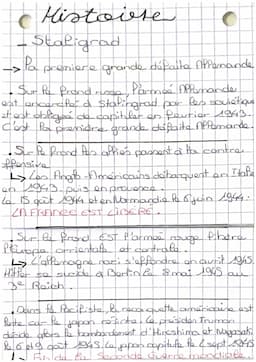 Histoire
- Stalingrad
→ la première grande défaite Allemande
• Sur le front russe, l'armée Allemande
est encerclée à Stalingrad par les soviétiques
et est obligée de capituler en février 1943.
C'est la première grande défaite Allemande.
• Sur le front les alliés passent à la contre
offensive
↳ Les Anglo-Américains débarquent en Italie
en 1943. puis en provence
le 15 août 1944 et en Normandie le 6 juin 1944.
LA FRANCE EST LIBÉRÉ.
• Sur le front EST l'armée rouge libère
l'Europe orientale et centrale.
↳ L'allemagne nazi s'effondre en avril 1945
Hitler se suicide à Berlin le 8 mai 1945 au
3e Reich.
• Dans le Pacifiste, la reconquette américaine est
lente car le japon résiste. Le président Truman
décide alors le bombardement d'Hiroshima et Nagasaki
le 6 et 9 août 1945. Le japon capitule le 2 sept. 1945
Fin de la Seconde Guerre mondiale.